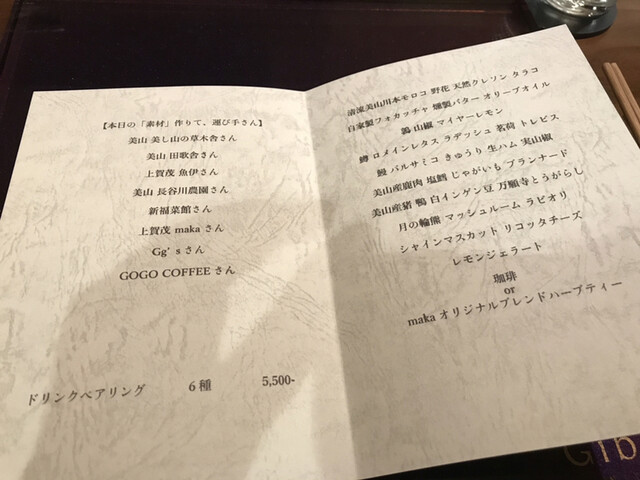 【本日の「素材」作りて、運び手さん】
美山 美し山の草木舎さん
美山 田歌舎さん
上賀茂 魚伊さん
美山 長谷川農園さん
新福菜館さん
上賀茂 maka さん
Gg's さん
GOGO COFFEE さん
ドリンクペアリング 6種 5,500-
清流美山川本モロコ 野花 天然クレソン タラコ
自家製フォカッチャ 燻製バター オリーブオイル
山椒 マイヤーレモン
鱒 ロメインレタス ラデッシュ 茗荷 トレビス
鰻 バルサミコ きゅうり 生ハム 実山椒
美山産鹿肉 塩鱈 じゃがいも ブランナード
美山産猪 鴨 白インゲン豆 万願寺とうがらし
月の輪熊 マッシュルーム ラビオリ
シャインマスカット リコッタチーズ
レモンジェラート
珈琲
or
maka オリジナルブレンドハーブティー